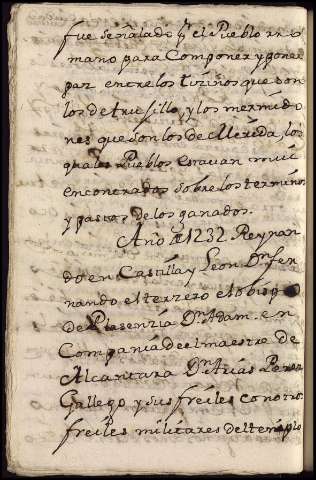 fue señalado pr el Pueblo rro
mano para Componer y poner
paz entre los tiziños que son
los de trusillo, y los mermido
nes que son los de Merida, los
quales Pueblos estavan mui
encontrados sobre los terminos
y pastos de los ganados.
Año de 1232 Reynan
do en Castilla y Leon Dn fer
nando el terzero el obispo
de Plasenzia Dn Adam. en
Compania de el maestre de
Alcantara Dn Arias Perez
Gallego y sus freiles con otros
freiles militares del templo